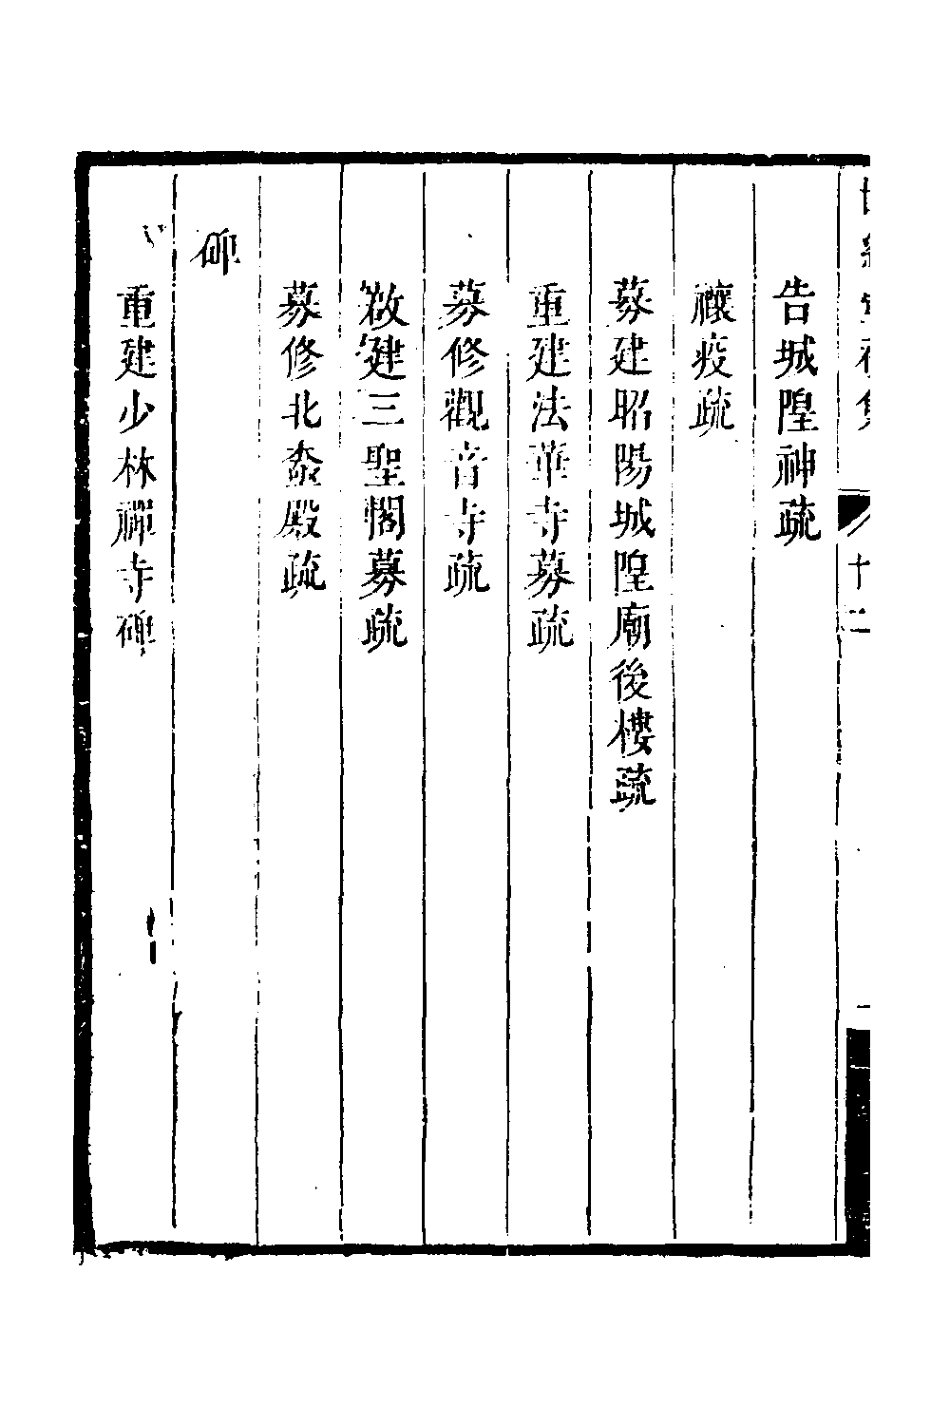 十二
告城隍神疏
禳疫疏
募建昭陽城隍廟後樓疏
重建法華寺募疏
募修觀音寺疏
啟建三聖閣募疏
募修北殿疏
碑
重建少林禪寺碑